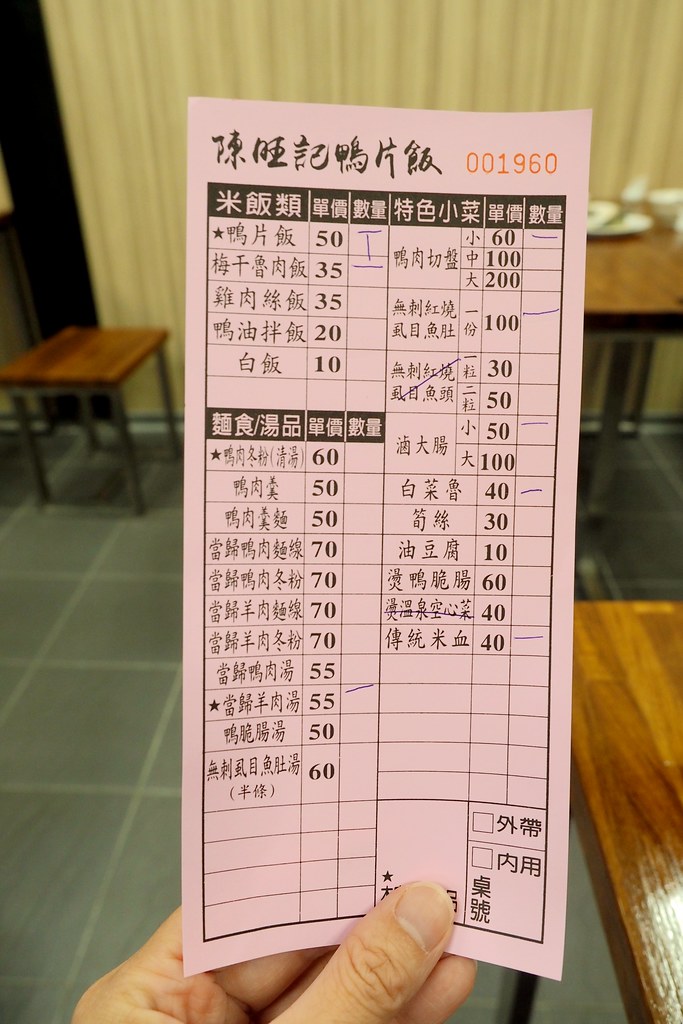 陳旺記鴨片飯 001960
米飯類 單價 數量
★鴨片飯 50
梅干魯肉飯 35
雞肉絲飯 35
鴨油拌飯 20
白飯 10
麵食/湯品 單價 數量
★鴨肉冬粉(清湯) 60
鴨肉羹 50
鴨肉羹麵 50
當歸鴨肉麵線 70
當歸鴨肉冬粉 70
當歸羊肉麵線 70
當歸羊肉冬粉 70
當歸鴨肉湯 55
★當歸羊肉湯 55
鴨脆腸湯 50
無刺虱目魚肚湯 60
(半條)
特色小菜 單價 數量
鴨肉切盤 小 60
中 100
大 200
無刺紅燒
虱目魚肚 一份 100
無刺紅燒
虱目魚頭 一粒 30
二粒 50
滷大腸 小 50
大 100
白菜魯 40
筍絲 30
油豆腐 10
燙鴨脆腸 60
燙溫泉空心菜 40
傳統米血 40
★
□外帶
□內用
桌號